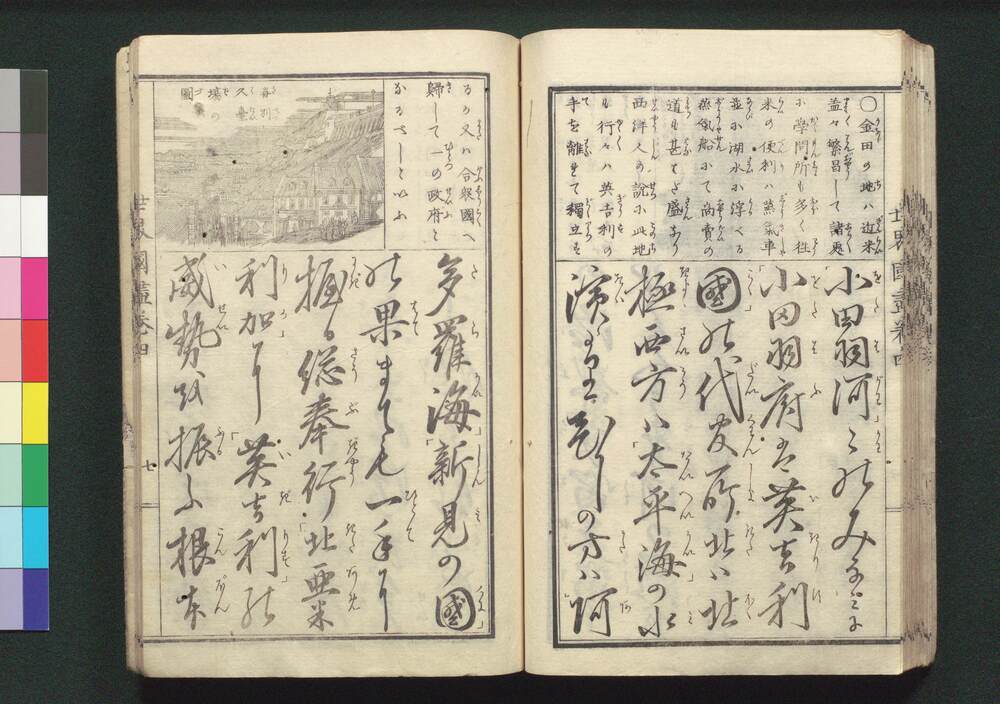 世界國盡卷四
○金田の地ハ近来
益々繁昌して諸處
に學問所も多く往
来の便利ハ蒸氣車
並に湖水に浮べる
蒸氣船にて商賣の
道も甚だ盛なり
西洋人の説に此地
も行々ハ英吉利の
手を離れて獨立す
小田羽河こゝのみなミに
小田羽府は英吉利
國の代官所北ハ北
極西方ハ太平海の水
濱より東の方ハ阿
るか又ハ合衆國へ
歸して一の政府と
なるべしといふ
多羅海新見の國
の果までも一手に
握る総奉行北亜米
利加に英吉利の
威勢を振ふ根本
世界國盡卷四
七